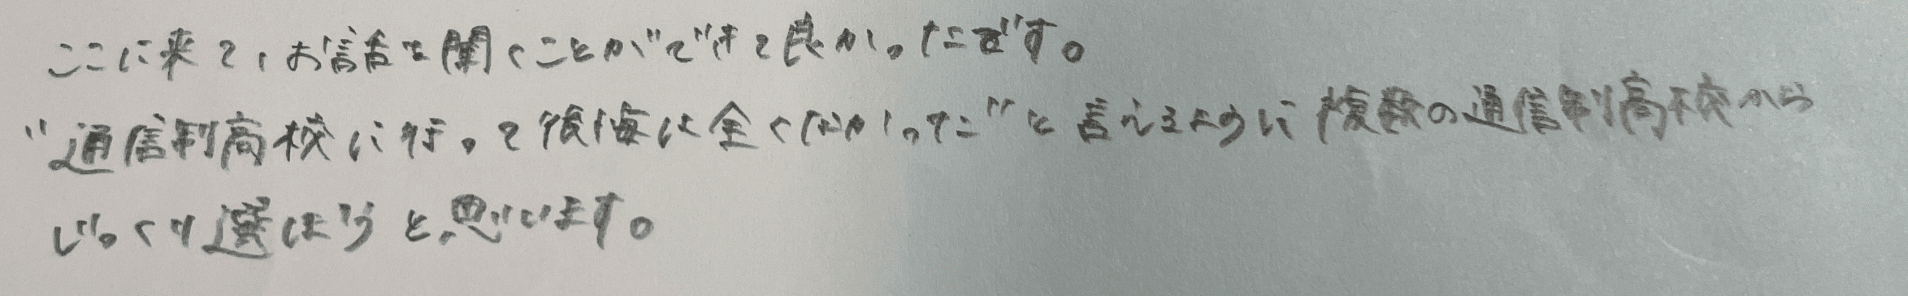 ここに来て、お話を聞くことができて良かったです。
"通信制高校に行って後悔は全くなかった"と言えるように複数の通信制高校から
じっくり選ぼうと思います。